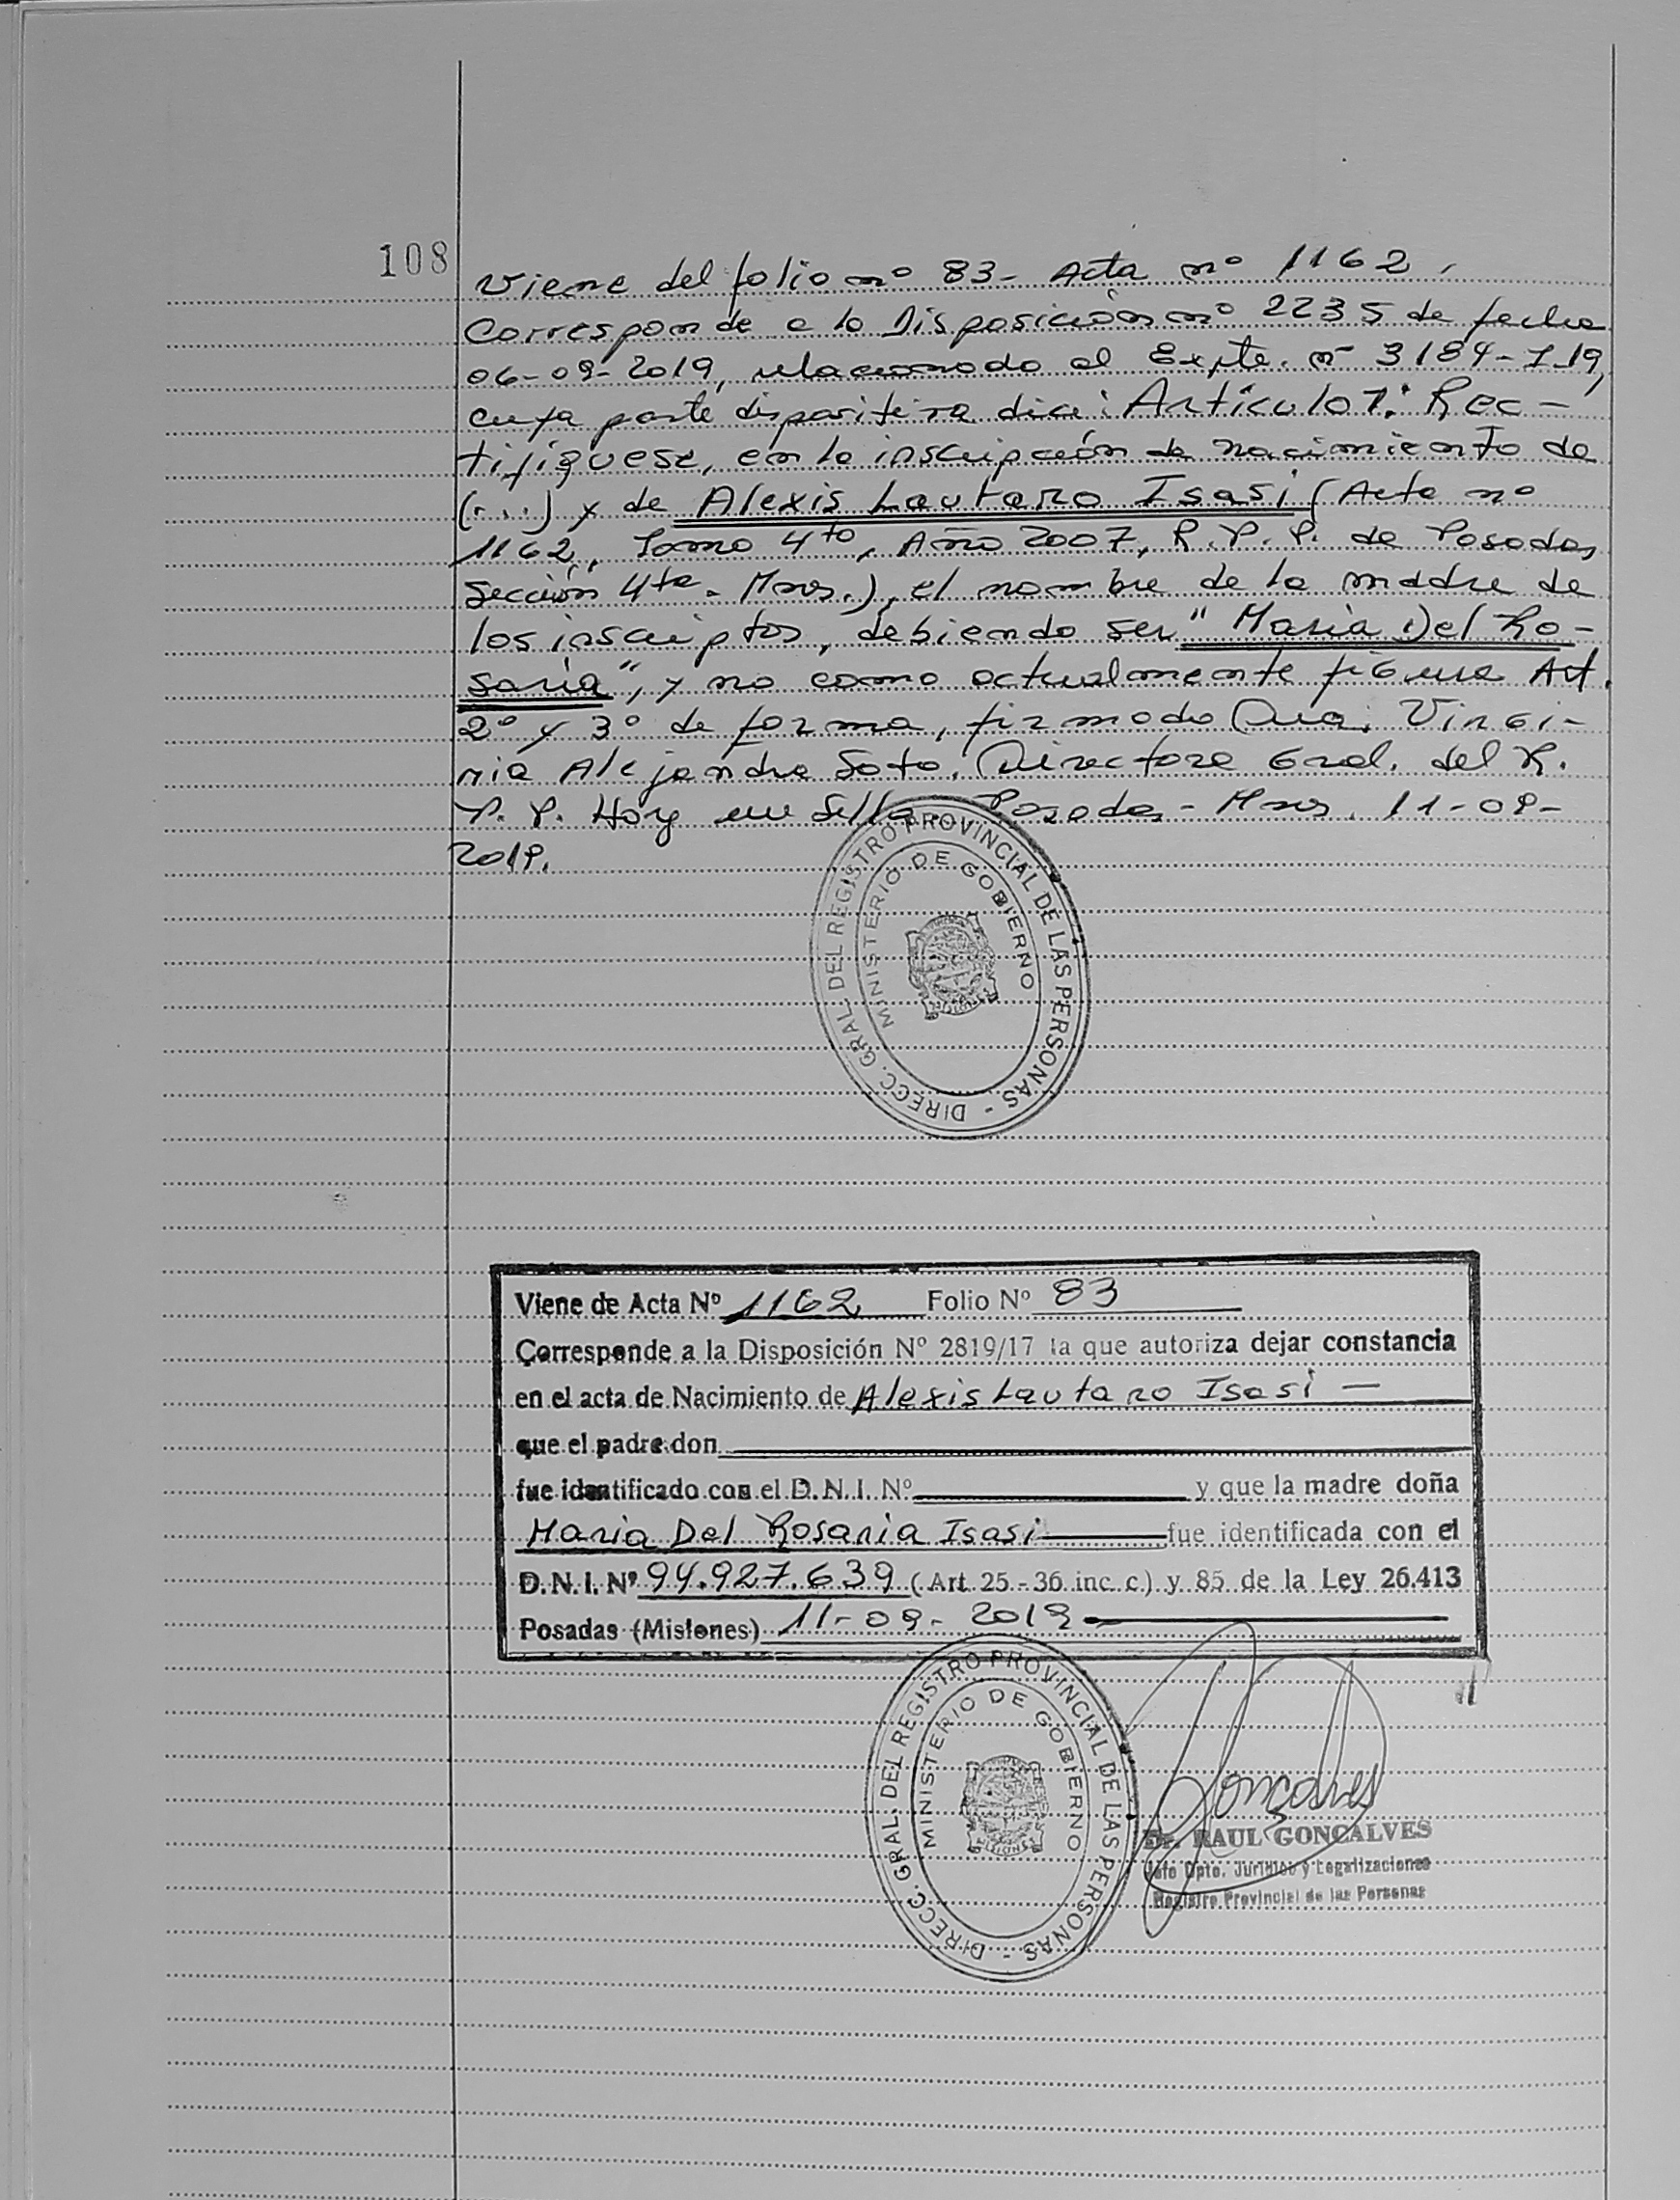 108
Viene del folio nº 83- Acta nº 1162,
Corresponde a la Disposición nº 2235 de fecha
06-09-2019, relacionado al Expte. nº 3184-I-19,
cuya parte dispositiva dice: Artículo 1: Rec-
tifíquese, en la inscripción de nacimiento de
(...) y de Alexis Lautaro Isasi (Acta nº
1162, Tomo 4to, Año 2007, R.P.P. de Posadas
Sección 4ta - Mnes.), el nombre de la madre de
los inscriptos, debiendo ser "Maria Del Ro-
saria", y no como actualmente figura Art.
2º y 3º de forma, firmado Dra. Virgi-
nia Alejandra Soto, Directora Gral. del R.
P. P. Hoy se Sella. Posadas - Mnes, 11-09-
2019.
DIRECC. GRAL. DEL REGISTRO PROVINCIAL DE LAS PERSONAS -
MINISTERIO DE GOBIERNO
Viene de Acta Nº 1162 Folio Nº 83
Corresponde a la Disposición Nº 2819/17 la que autoriza dejar constancia
en el acta de Nacimiento de Alexis Lautaro Isasi —
que el padre don
fue identificado con el D.N.I. Nº y que la madre doña
Maria Del Rosaria Isasi fue identificada con el
D.N.I. Nº 94.927.639 (Art. 25 - 36 inc. c) y 85 de la Ley 26.413
Posadas (Misiones) 11-09-2019
DIRECC. GRAL. DEL REGISTRO PROVINCIAL DE LAS PERSONAS -
MINISTERIO DE GOBIERNO
MISIONES
Gonçalves
Dr. RAUL GONCALVES
Jefe Dpto. Jurídico y Legalizaciones
Registro Provincial de las Personas